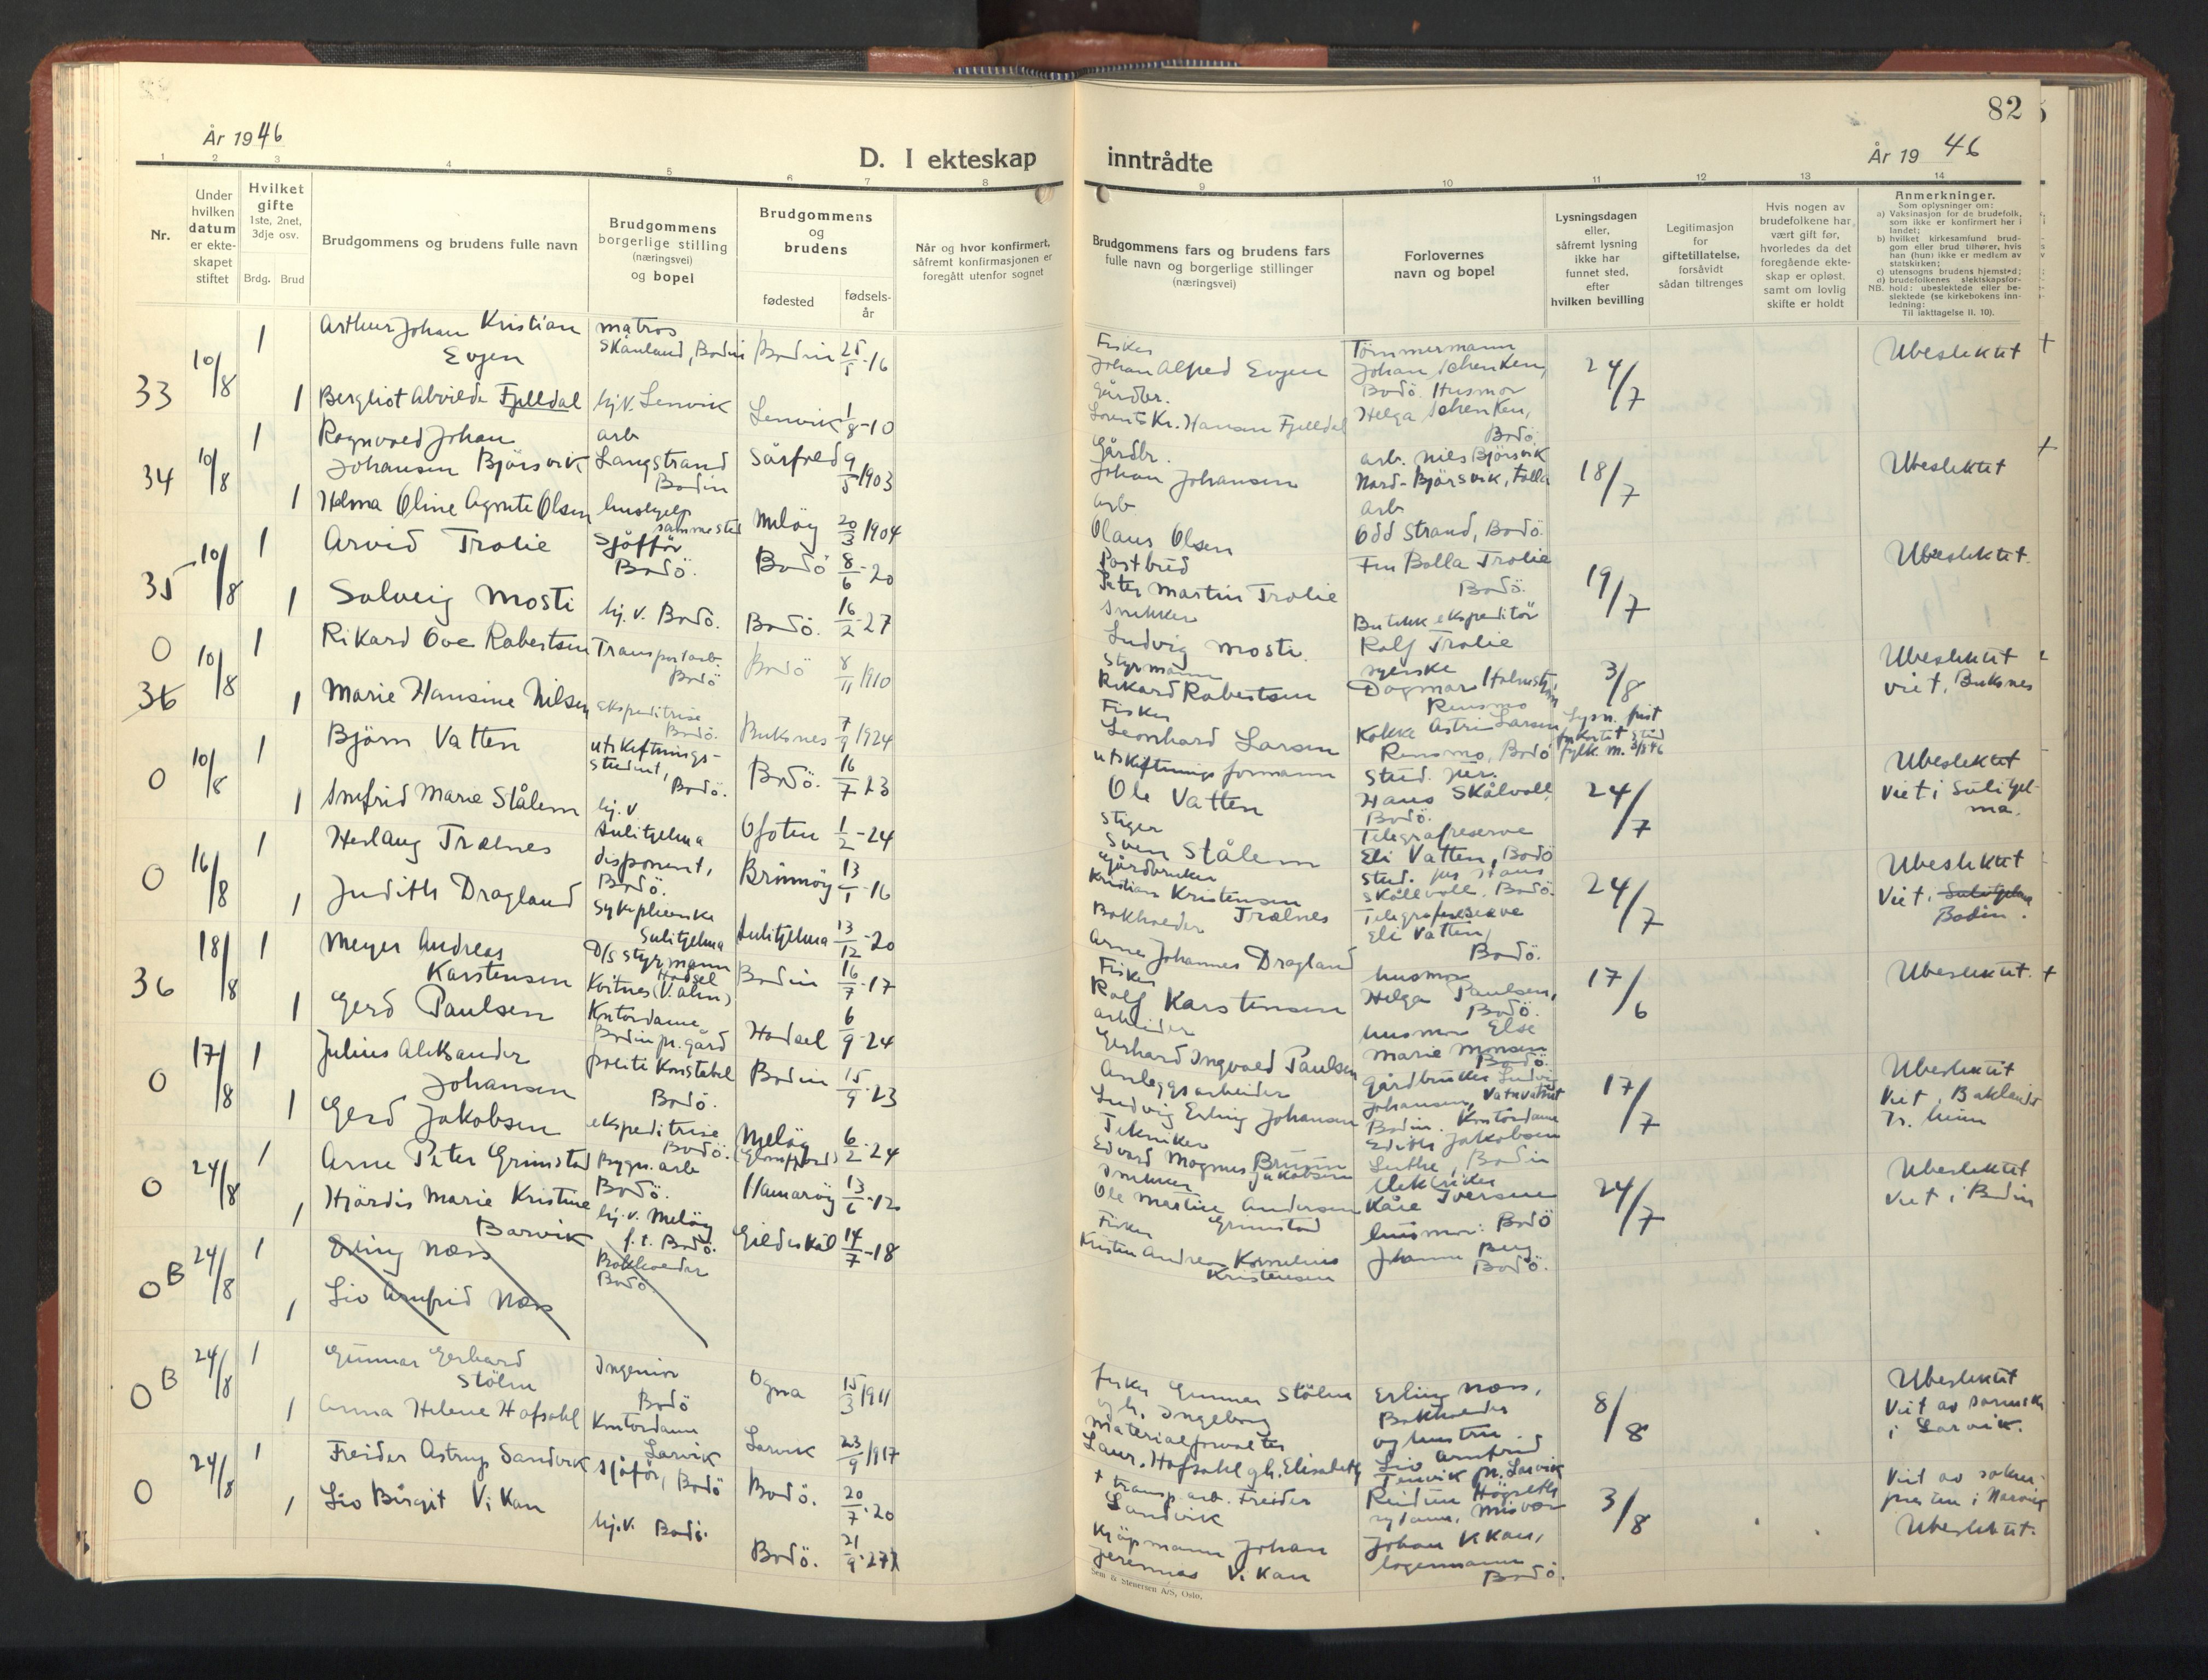 82
År 1946
D. I ekteskap
inntrådte
År 19 46
1
2
3
4
5
6
7
8
9
10
11
12
13
14
Nr.
Under
hvilken
datum
er ekte-
skapet
stiftet
Hvilket
gifte
1ste, 2net,
3dje osv.
Brdg.
Brud
Brudgommens og brudens fulle navn
Brudgommens
borgerlige stilling
(næringsvei)
og bopel
Brudgommens
og
brudens
fødested
fødsels-
år
Når og hvor konfirmert,
såfremt konfirmasjonen er
foregått utenfor sognet
Brudgommens fars og brudens fars
fulle navn og borgerlige stillinger
(næringsvei)
Forlovernes
navn og bopel
Lysningsdagen
eller,
såfremt lysning
ikke har
funnet sted,
efter
hvilken bevilling
Legitimasjon
for
giftetillatelse,
forsåvidt
sådan tiltrenges
Hvis nogen av
brudefolkene har
vært gift før,
hvorledes da det
foregående ekte-
skap er opløst,
samt om lovlig
skifte er holdt
Anmerkninger.
Som oplysninger om:
a) Vaksinasjon for de brudefolk,
som ikke er konfirmert her i
landet;
b) hvilket kirkesamfund brud-
gom eller brud tilhører, hvis
han (hun) ikke er medlem av
statskirken;
c) utensogns brudens hjemsted;
d) brudefolkenes slektskapsfor-
NB. hold: ubeslektede eller be-
slektede (se kirkebokens inn-
ledning:
Til iakttagelse II. 10).
33
10/8
1
Arthur Johan Kristian
Evjen
matros
Skånland, Bodin
Bodin
25/5-16
1
Bergliot Alvilde Fjelldal
hj.v. Lenvik
Lenvik
1/8-10
Fisker
Johan Alfred Evjen
Gårdbr.
Lorents Kr. Hansen Fjelldal
Tømmermann
Johan Schenken,
Bodö. Husmor
Helga Schenken,
Bodö.
24/7
Ubeslektet +
34
10/8
1
Ragnvald Johan
Johansen Bjørsvik
arb
Langstrand
Bodin
Sårfold
9/5-1903
1
Helma Oline Agnute Olsen
hushjelp
samme sted
Meløy
20/3 1904
Gårdbr.
Johan Johansen
arb
Olaus Olsen
arb. Nils Bjørsvik
Nord-Bjørsvik, Folla
arb
Odd Strand, Bodö.
18/7
Ubeslektet +
35
10/8
1
Arvid Trolie
Sjåfför
Bodö.
Bodö
8/6-20
1
Solveig Mosti
hj.v. Bodö.
Bodö.
16/2-27
Postbud
Peter Martin Trolie
Snekker
Ludvig Mosti.
Fru Bolla Trolie
Bodö.
Butikk ekspeditör
Rolf Trolie
19/7
Ubeslektet.
0
36
10/8
1
Rikard Ove Robertsen
Transportarb.
Bodö
Bodö
8/11 1910
1
Marie Hansine Nilsen
ekspeditrise
Bodö.
Buksnes
7/9 1924
Styrmann
Rikard Robertsen
Fisker
Leonhard Larsen
syerske
Dagmar
Rensmo
Kokke Astri Larsen
Rensmo, Bodö
3/8
Lysn. frist
forkortet
fylk. m. 3/8 46
Ubeslektet
viet, Buksnes
0
10/8
1
Björn Vatten
utskiftnings-
student,
Bodö.
Bodö.
16/7 23
1
Snefrid Marie Stålem
hj.v.
Sulitjelma
Ofoten
1/2-24
utskiftnings formann
Ole Vatten
Stiger
Sven Stålem
Stud. jur.
Hans Skålvoll,
Bodö.
Telegrafreserve
Eli Vatten, Bodö
24/7
Ubeslektet
Viet i Sulitjel-
ma.
0
16/8
1
Herlaug Trælnes
disponent,
Bodö.
Brönnöy
13/1-16
1
Judith Dragland
Sykepleierske
Sulitjelma
Sulitjelma
13/12-20
Gårdbruker
Kristian Kristensen
Trælnes
Bokholder
Arne Johannes Dragland
Stud. jur Hans
Skålvoll, Bodö.
Telegrafreserve
Eli Vatten,
Bodö.
24/7
Ubeslektet
Viet, Sulitjelma
Bodin.
36
18/8
1
Meyer Andreas
Karstensen
D/S styrmann
Hadsel
Bodin
16/7-17
1
Gerd Paulsen
Kontordame
Bodin pr.gård
Hadsel
6/9-24
Fisker
Rolf Karstensen
arbeider
Gerhard Ingvald Paulsen
husmor
Helga Paulsen,
Bodö.
husmor Else
Marie Monsen
Bodö.
17/6
Ubeslektet. +
0
17/8
1
Julius Aleksander
Johansen
politi Konstabel
Bodö.
Bodin
15/9-23
1
Gerd Jakobsen
ekspeditrise
Bodö.
Meløy
(Glomfjord)
6/2-24
Anleggsarbeider
Ludvig Erling Johansen
Tekniker
Edvard Magnus Bruun
Jakobsen
gårdbruker Ludvig
Johansen, Vatnvatnet
Bodin. Kontordame
Edith Jakobsen
Bodin
17/7
Ubeslektet
Viet,
0
24/8
1
Arne Peter Grimstad
Bygn. arb
Bodö.
Hamarøy
13/6-12
1
Hjördis Marie Kristine
Barvik
hj.v. Meløy
f.t. Bodö.
Gildeskål
14/7-18
Snekker
Ole Martin Andersen
Grimstad
Fisker
Kristen Andreas Kornelius
Kristensen
Elektriker
Kåre Iversen
husmor: Bodö
Johanne Berg
Bodö.
24/7
Ubeslektet
Viet i Bodin
0 B
24/8
1
Erling Næss
Bokholder
Bodö
1
Liv Arnfrid Næss
0 B
24/8
1
Gunnar Gerhard
Stölen
Ingeniør
Bodö
Ogna
15/3 1911
1
Anna Helene Hafsahl
Kontordame
Larvik
Larvik
23/9 1917
fisker Gunnar Stölen
g.h. Ingeborg
Materialforvalter
Laur. Hafsahl gh. Elisabeth
Erling Næss,
Bokholder
og hustru
Liv Arnfrid
Tenvik pr. Larvik
8/8
Ubeslektet
Viet av
i Larvik.
0
24/8
1
Freider Astrup Sandvik
sjåför, Bodö
Bodö.
20/7-20
1
Liv Birgit Vikan
hj.v. Bodö.
Bodö.
21/9-27
+ transp. arb. Freider
Sandvik
Kjøpmann Johan
Jeremias Vikan
Reidun
Misvær
Johan Vikan,
lagermann
Bodö.
3/8
Viet av sokne-
presten i Narvik
Ubeslektet.
Sem & Stenersen A/S, Oslo.